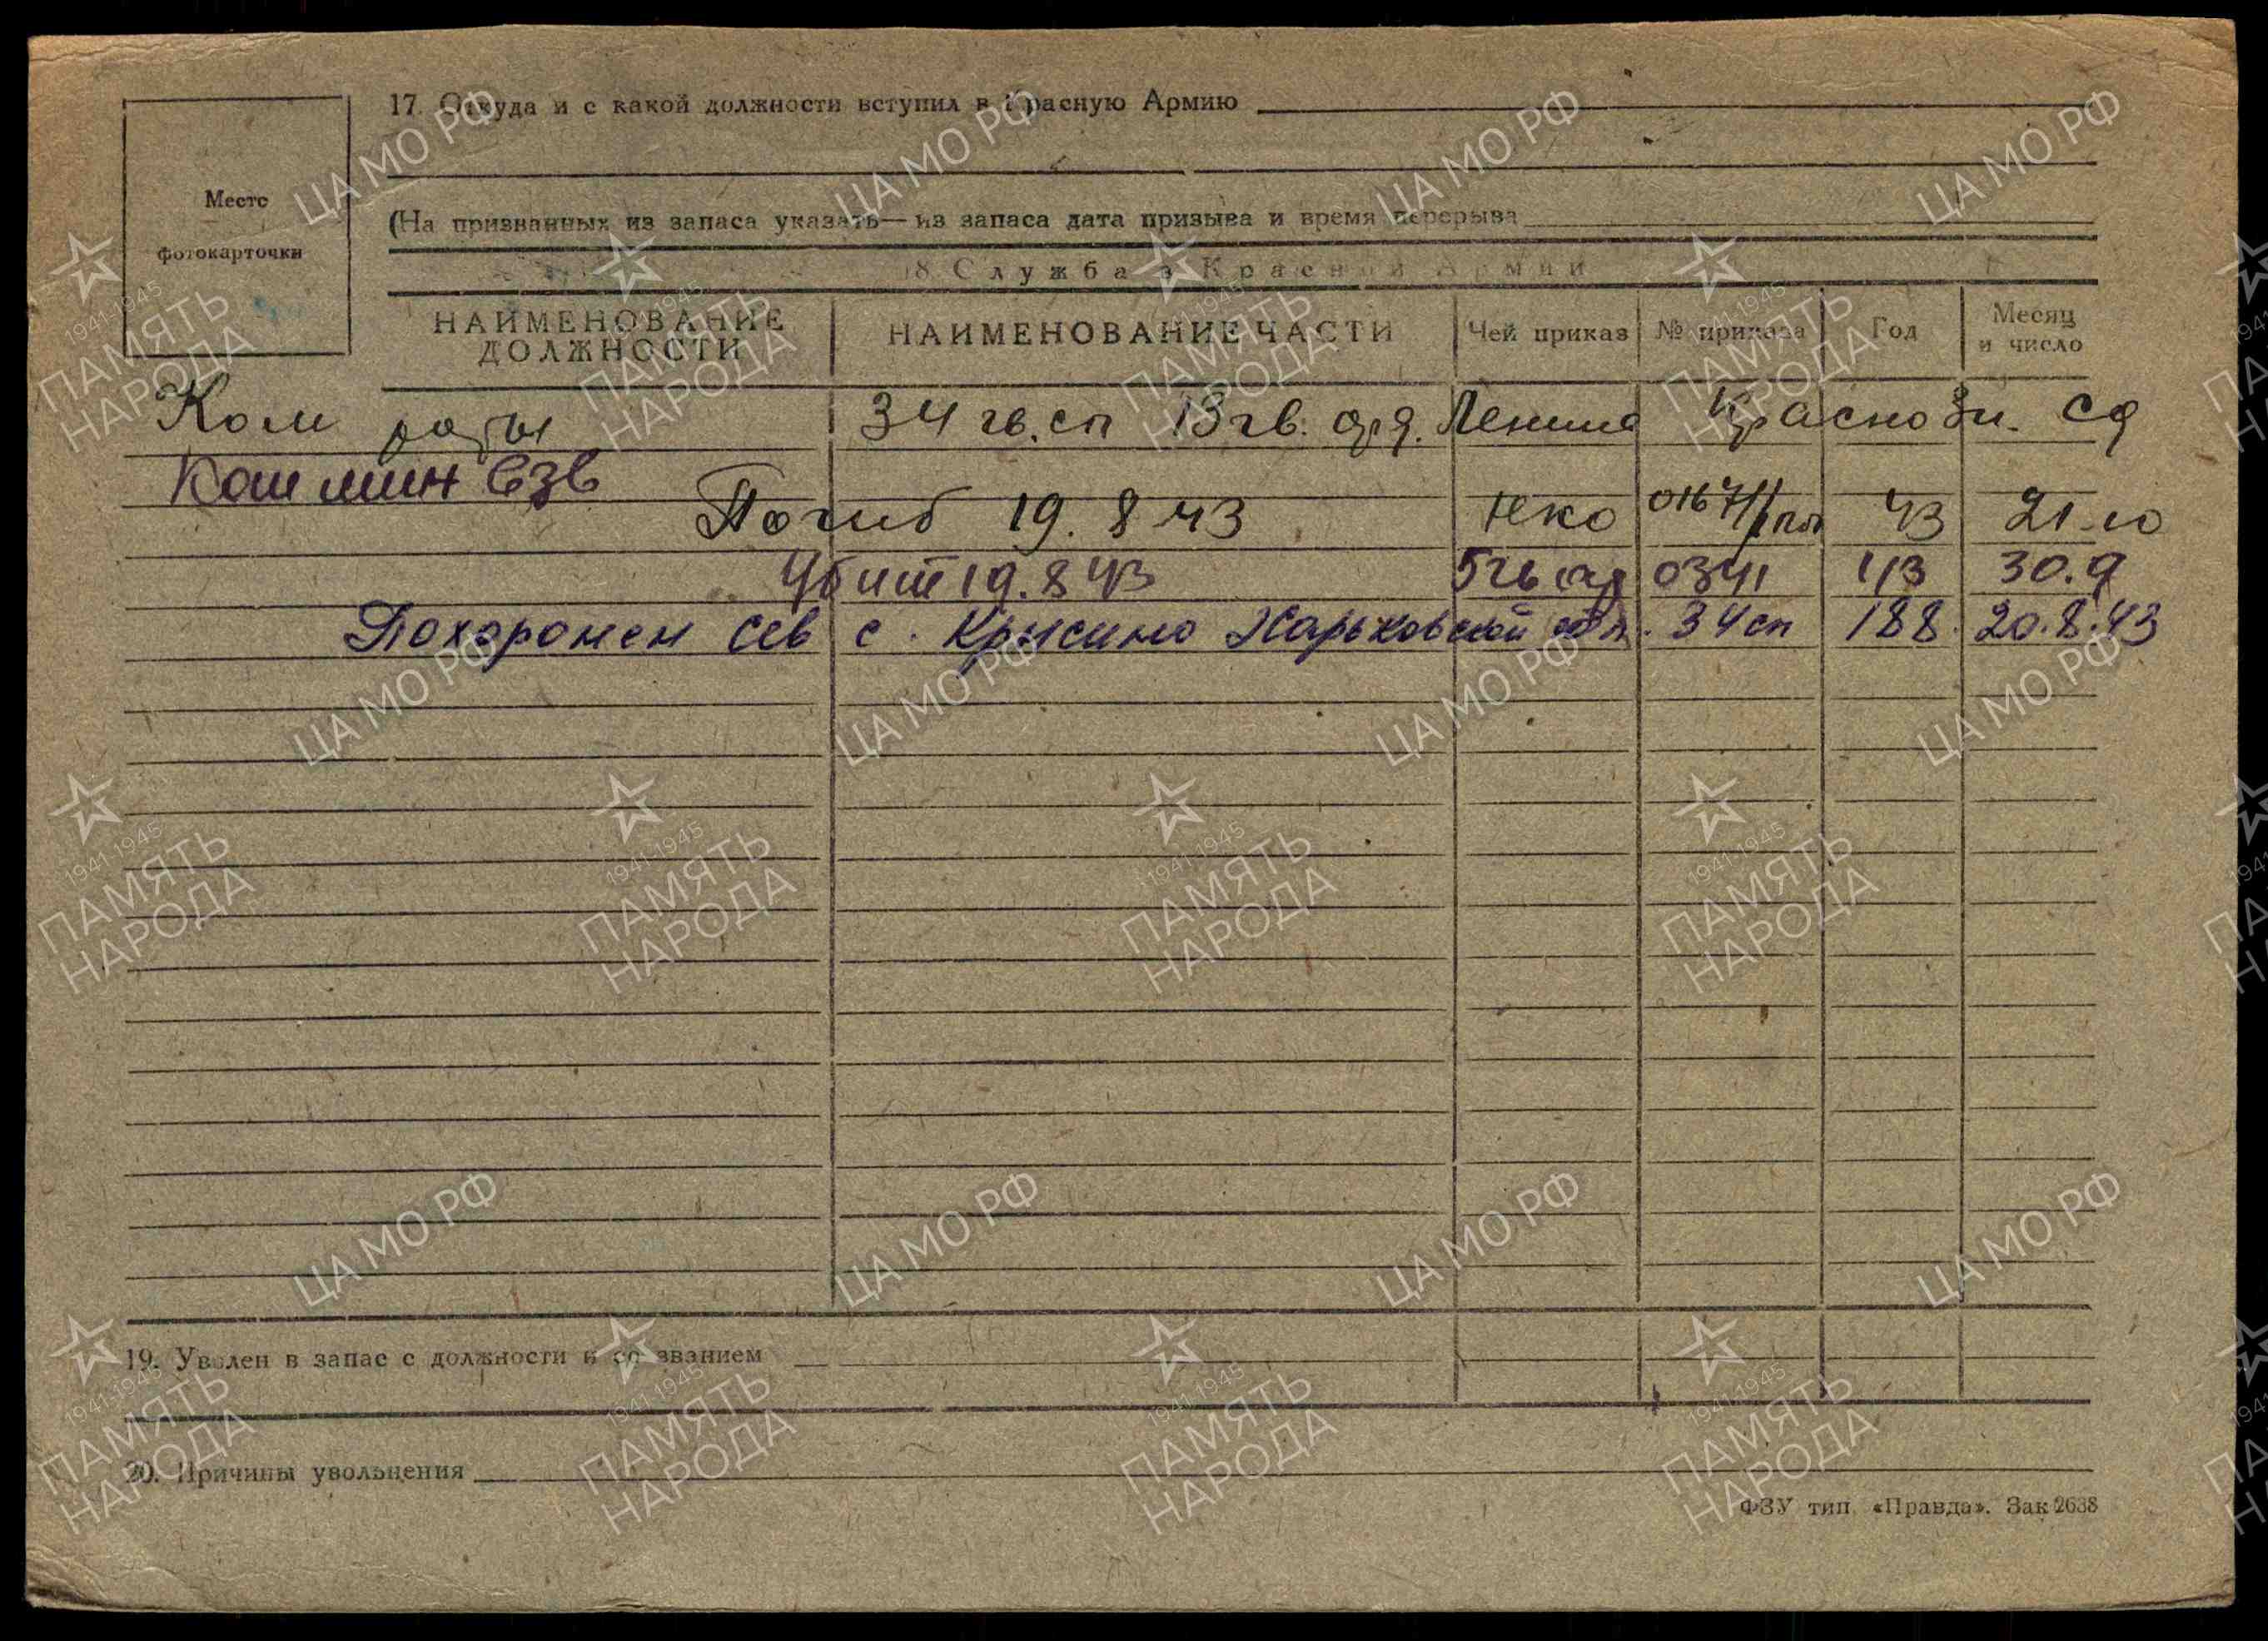 17. Откуда и с какой должности вступил в Красную Армию
Место
фотокарточки
(На признанных из запаса указать — из запаса дата призыва и время перерыва
18. Служба в Красной Армии
НАИМЕНОВАНИЕ ДОЛЖНОСТИ НАИМЕНОВАНИЕ ЧАСТИ Чей приказ № приказа Год Месяц и число
Ком роты 34 гв. сп 13 гв. орд. Ленина Краснозн. сд
Ком мин взв
Погиб 19. 8 43 НКО 43 21 10
Убит 19. 8 43 5 гв 0341 43 30. 9
Похоронен сев с. Крысино Харьковской обл. 34 сп 188 20. 8. 43
19. Уволен в запас с должности и со званием
20. Причины увольнения
ФЗУ тип. «Правда». Зак 2638
ЦА МО РФ
1941-1945
ПАМЯТЬ
НАРОДА